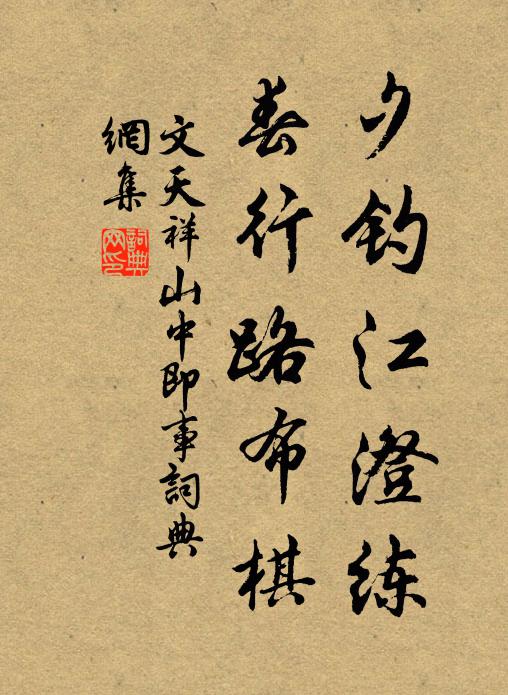 夕钓江澄练
春行路布棋
文天祥山中即事詞典
網集
詞典网印